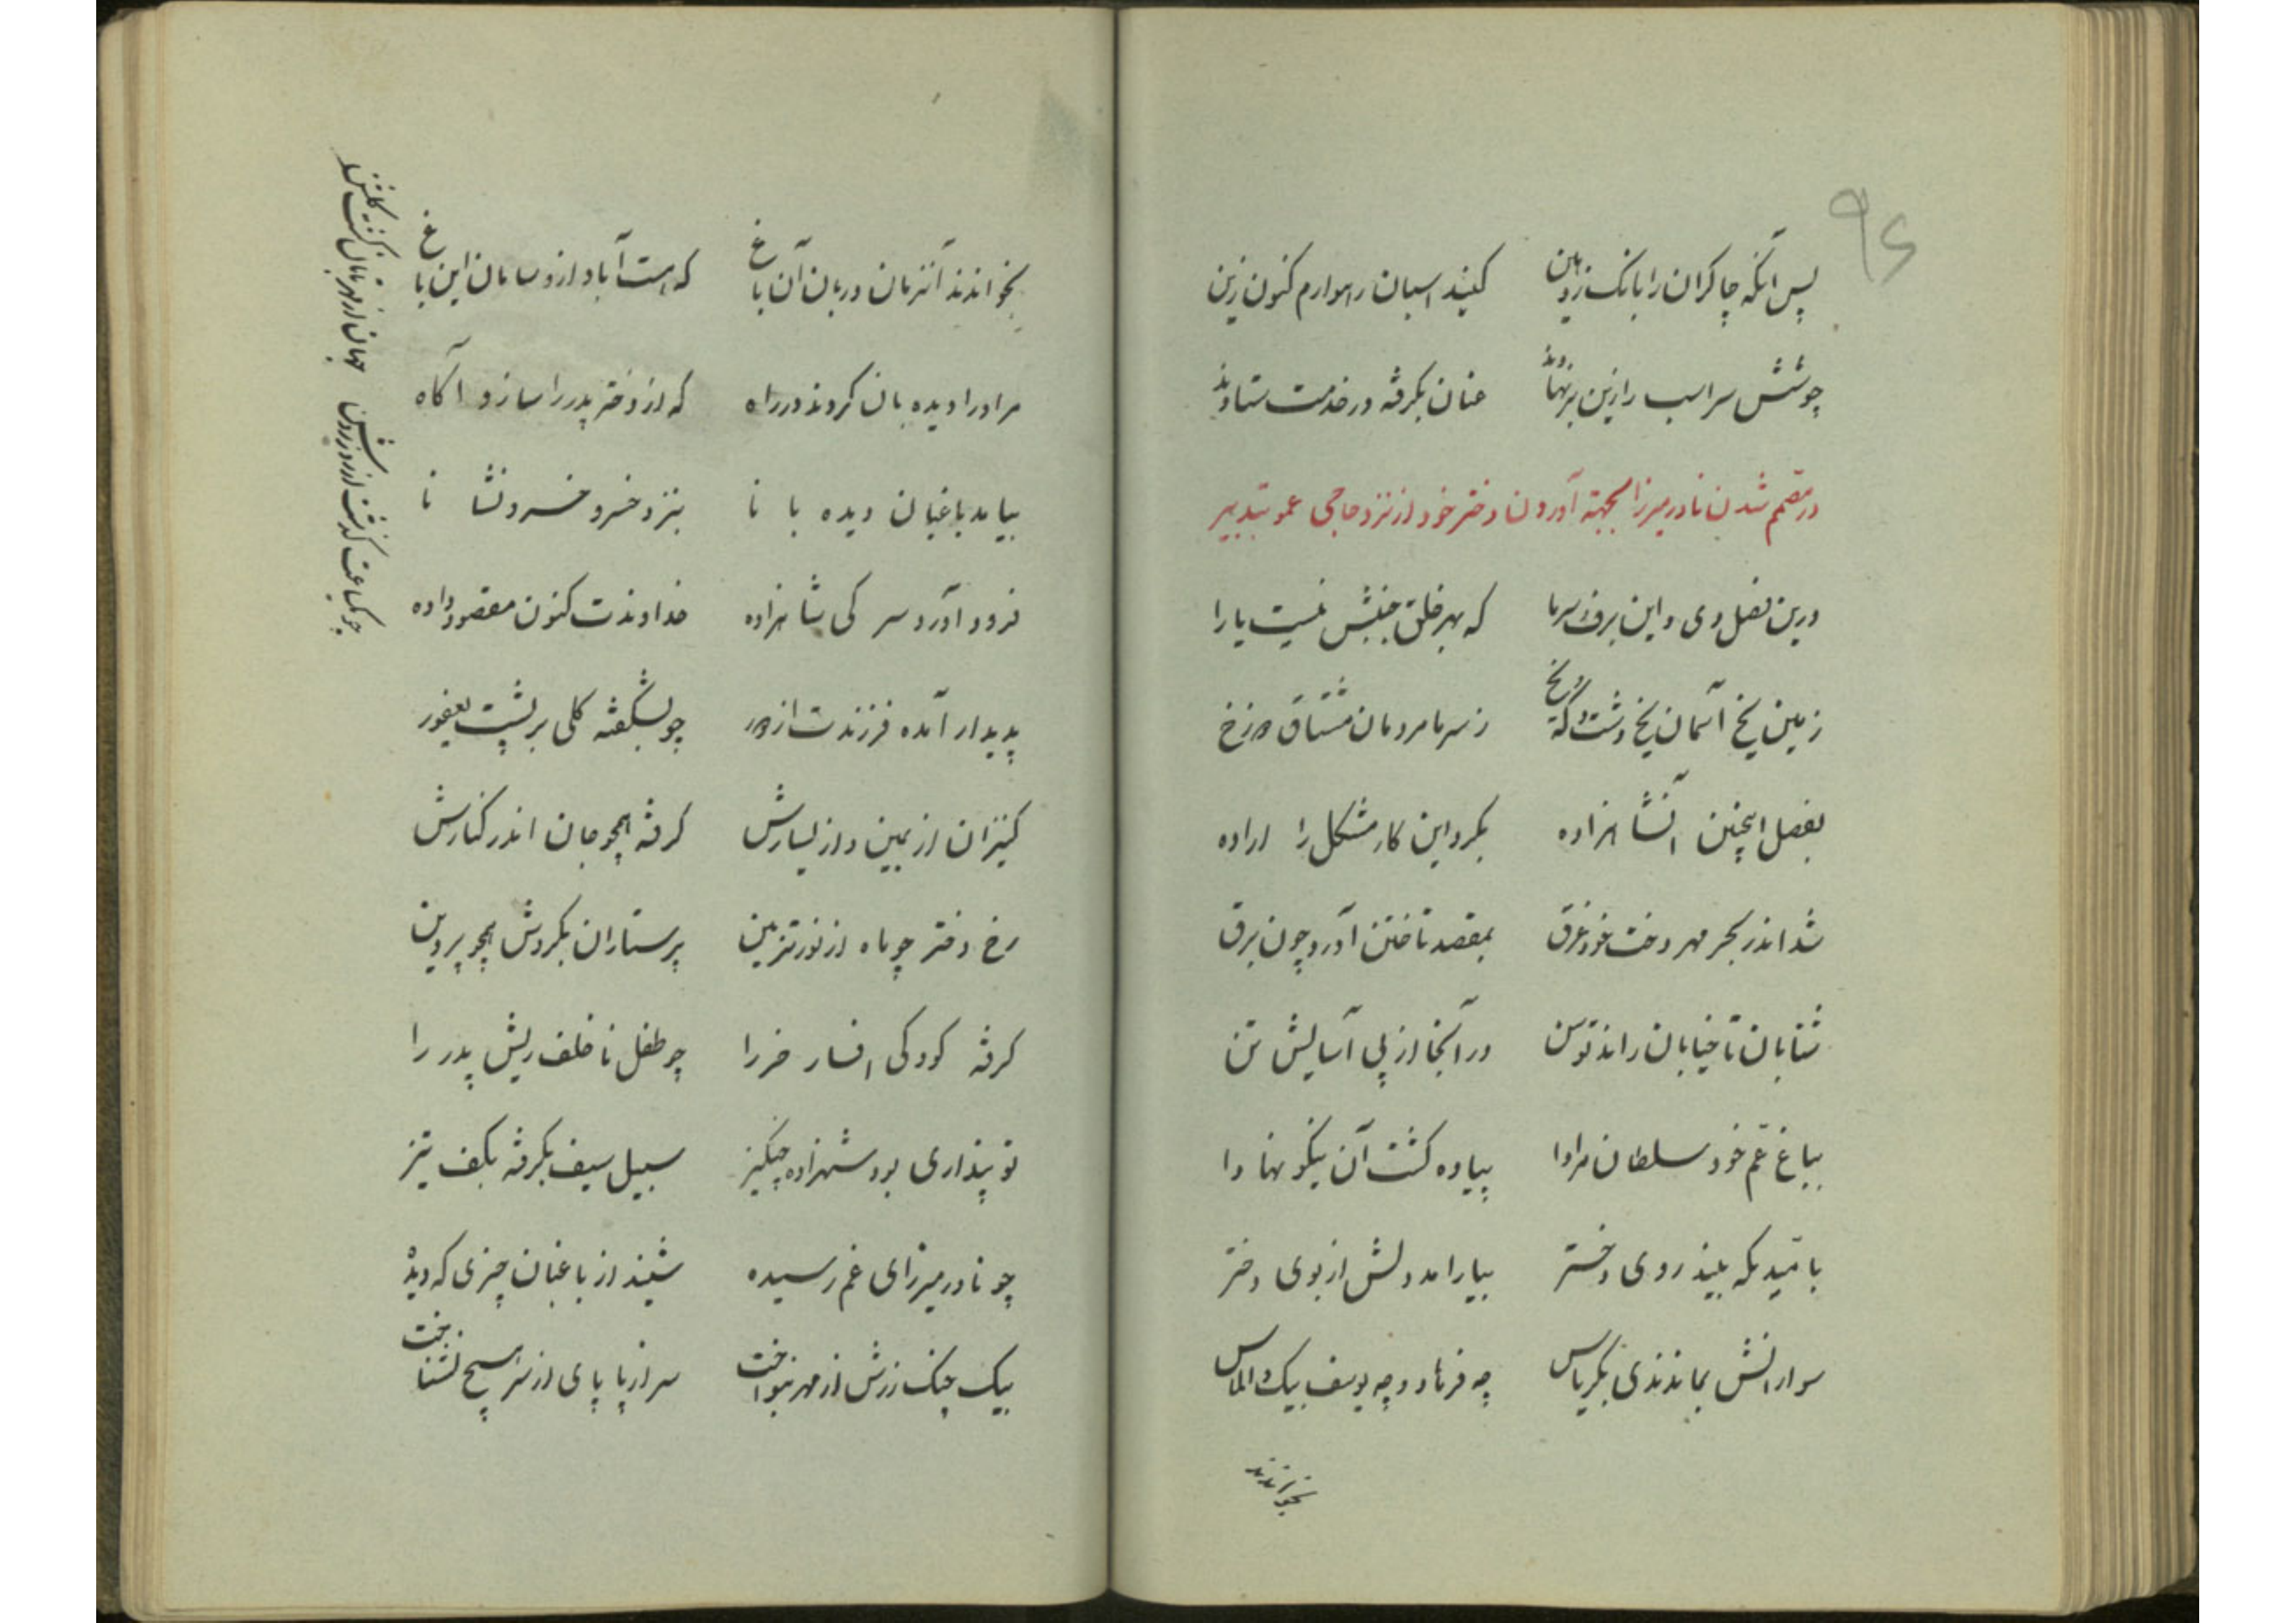 ۹۴
پس آنکه چاکران را بانک زد هین کنید اسبان راهوارم کنون زین
چوشش سر اسب را زین برنهادند عنان بکرفته در خدمت ستادند
در مصمم شدن نادر میرزا بجهة آوردن دختر خود از نزد حاجی عمو بتدبیر
درین فصل دی و این برف سرما که بهر خلق جنبش نیست یارا
زمین یخ آسمان یخ دشت و که یخ ز سرما مردمان مشتاق دوزخ
بفصل اینچنین آنشاهزاده بکرد این کار مشکل را اراده
شد اندر بحر مهر دخت خود غرق بمقصد تاختن آورد چون برق
شتابان تا خیابان راند توسن در آنجا از پی آسایش تن
بباغ عم خود سلطان مراد پیاده کشت آن نیکو نهاد
بامید یکه بیند روی دختر بیارامد دلش از بوی دختر
سوارانش بماندندی بکریاس چه فرهاد و چه یوسف بیک و الماس
بخواندند
بخواندند آنزمان دربان آن باغ که هست آباد ازو سامان این باغ
مر او را دیده بان کردند در راه که از دختر پدر را سازد آکاه
بیامد باغبان دیده بانا بنزد خسرو خسرو نشانا
فرود آورد سر کی شاهزاده خداوندت کنون مقصود داده
پدیدار آمده فرزندت از دور چو بشکفته کلی بر پشت یعفور
کنیزان از یمین و از یسارش کرفته همچو جان اندر کنارش
رخ دختر چو ماه از نور تزیین پرستاران بکردش همچو پروین
کرفته کودکی افسار خر را چو طفل ناخلف ریش پدر را
تو پنداری بود شهزاده چنکیز سبیل سیف بکرفته بکف تیز
چو نادر میرزای غم رسیده شنید از باغبان چیزی که دیده
بیک چنک زرش از مهر بنواخت سر از پا پای از سر هیچ نشناخت
چو یکساعت کذشت از روز روشن جهان از مهر تابان کشت کلشن